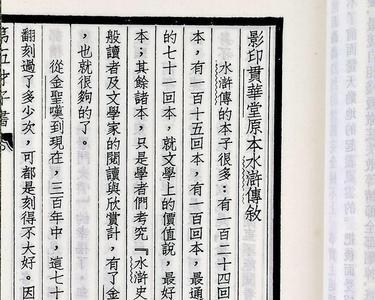 影印貫華堂原本水滸傳敘
水滸傳的本子很多：有一百二十四回
本，有一百十五回本，有一百回本，最通
的七十一回本，就文學上的價值說，最好
本；其餘諸本，只是學者們考究『水滸史
般讀者及文學家的閱讀與欣賞計，有了金
，也就很夠的了。
從金聖嘆到現在，三百年中，這七十
翻刻過了多少次，可都是刻得不大好。因
第五才子書